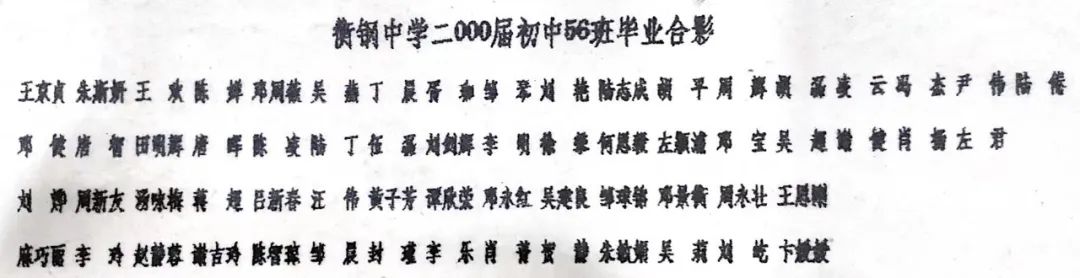 衡钢中学二000届初中56班毕业合影
王京贞 朱渐妍 王欢 陈婵 邓周薇 吴燕 丁晨 胥和 邹翠 刘艳 陆志成 胡平 周辉 胡磊 凌云 冯杰 尹伟 陆倦
邓健 唐智 田明辉 唐晖 陈凌 陆丁 伍磊 刘剑辉 李明 徐黎 何恩毅 左颖潇 邓宝 吴超 谢健 肖杨 左君
刘烨 周新友 汤咏梅 蒋超 吕新春 汪伟 黄子芳 谭欣荣 邓永红 吴建良 邹球锦 邓景衡 周永壮 王恩刚
麻巧丽 李玲 赵静蓉 谢吉玲 陈智琼 邹晨 封瑾 李乐 肖菁 贺静 朱敏娟 吴莉 刘屹 卞媛媛